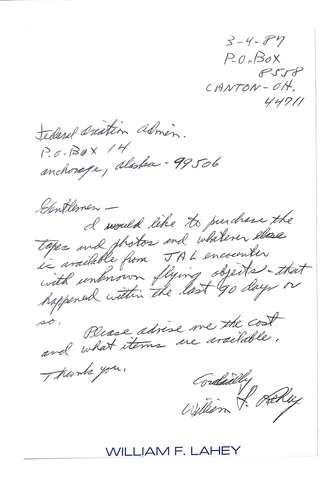 3-4-87
P.O. Box
8558
CANTON - OH.
44711
Federal aviation admin.
P.O. Box 14
anchorage, alaska - 99506
Gentlemen -
I would like to purchase the
taps and photos and whatever else
is available from JAL encounter
with unknown flying objects - that
happened within the last 90 days or
so.
Please advise me the cost
and what items are available.
Thank you.
Cordially
William F. Lahey
WILLIAM F. LAHEY